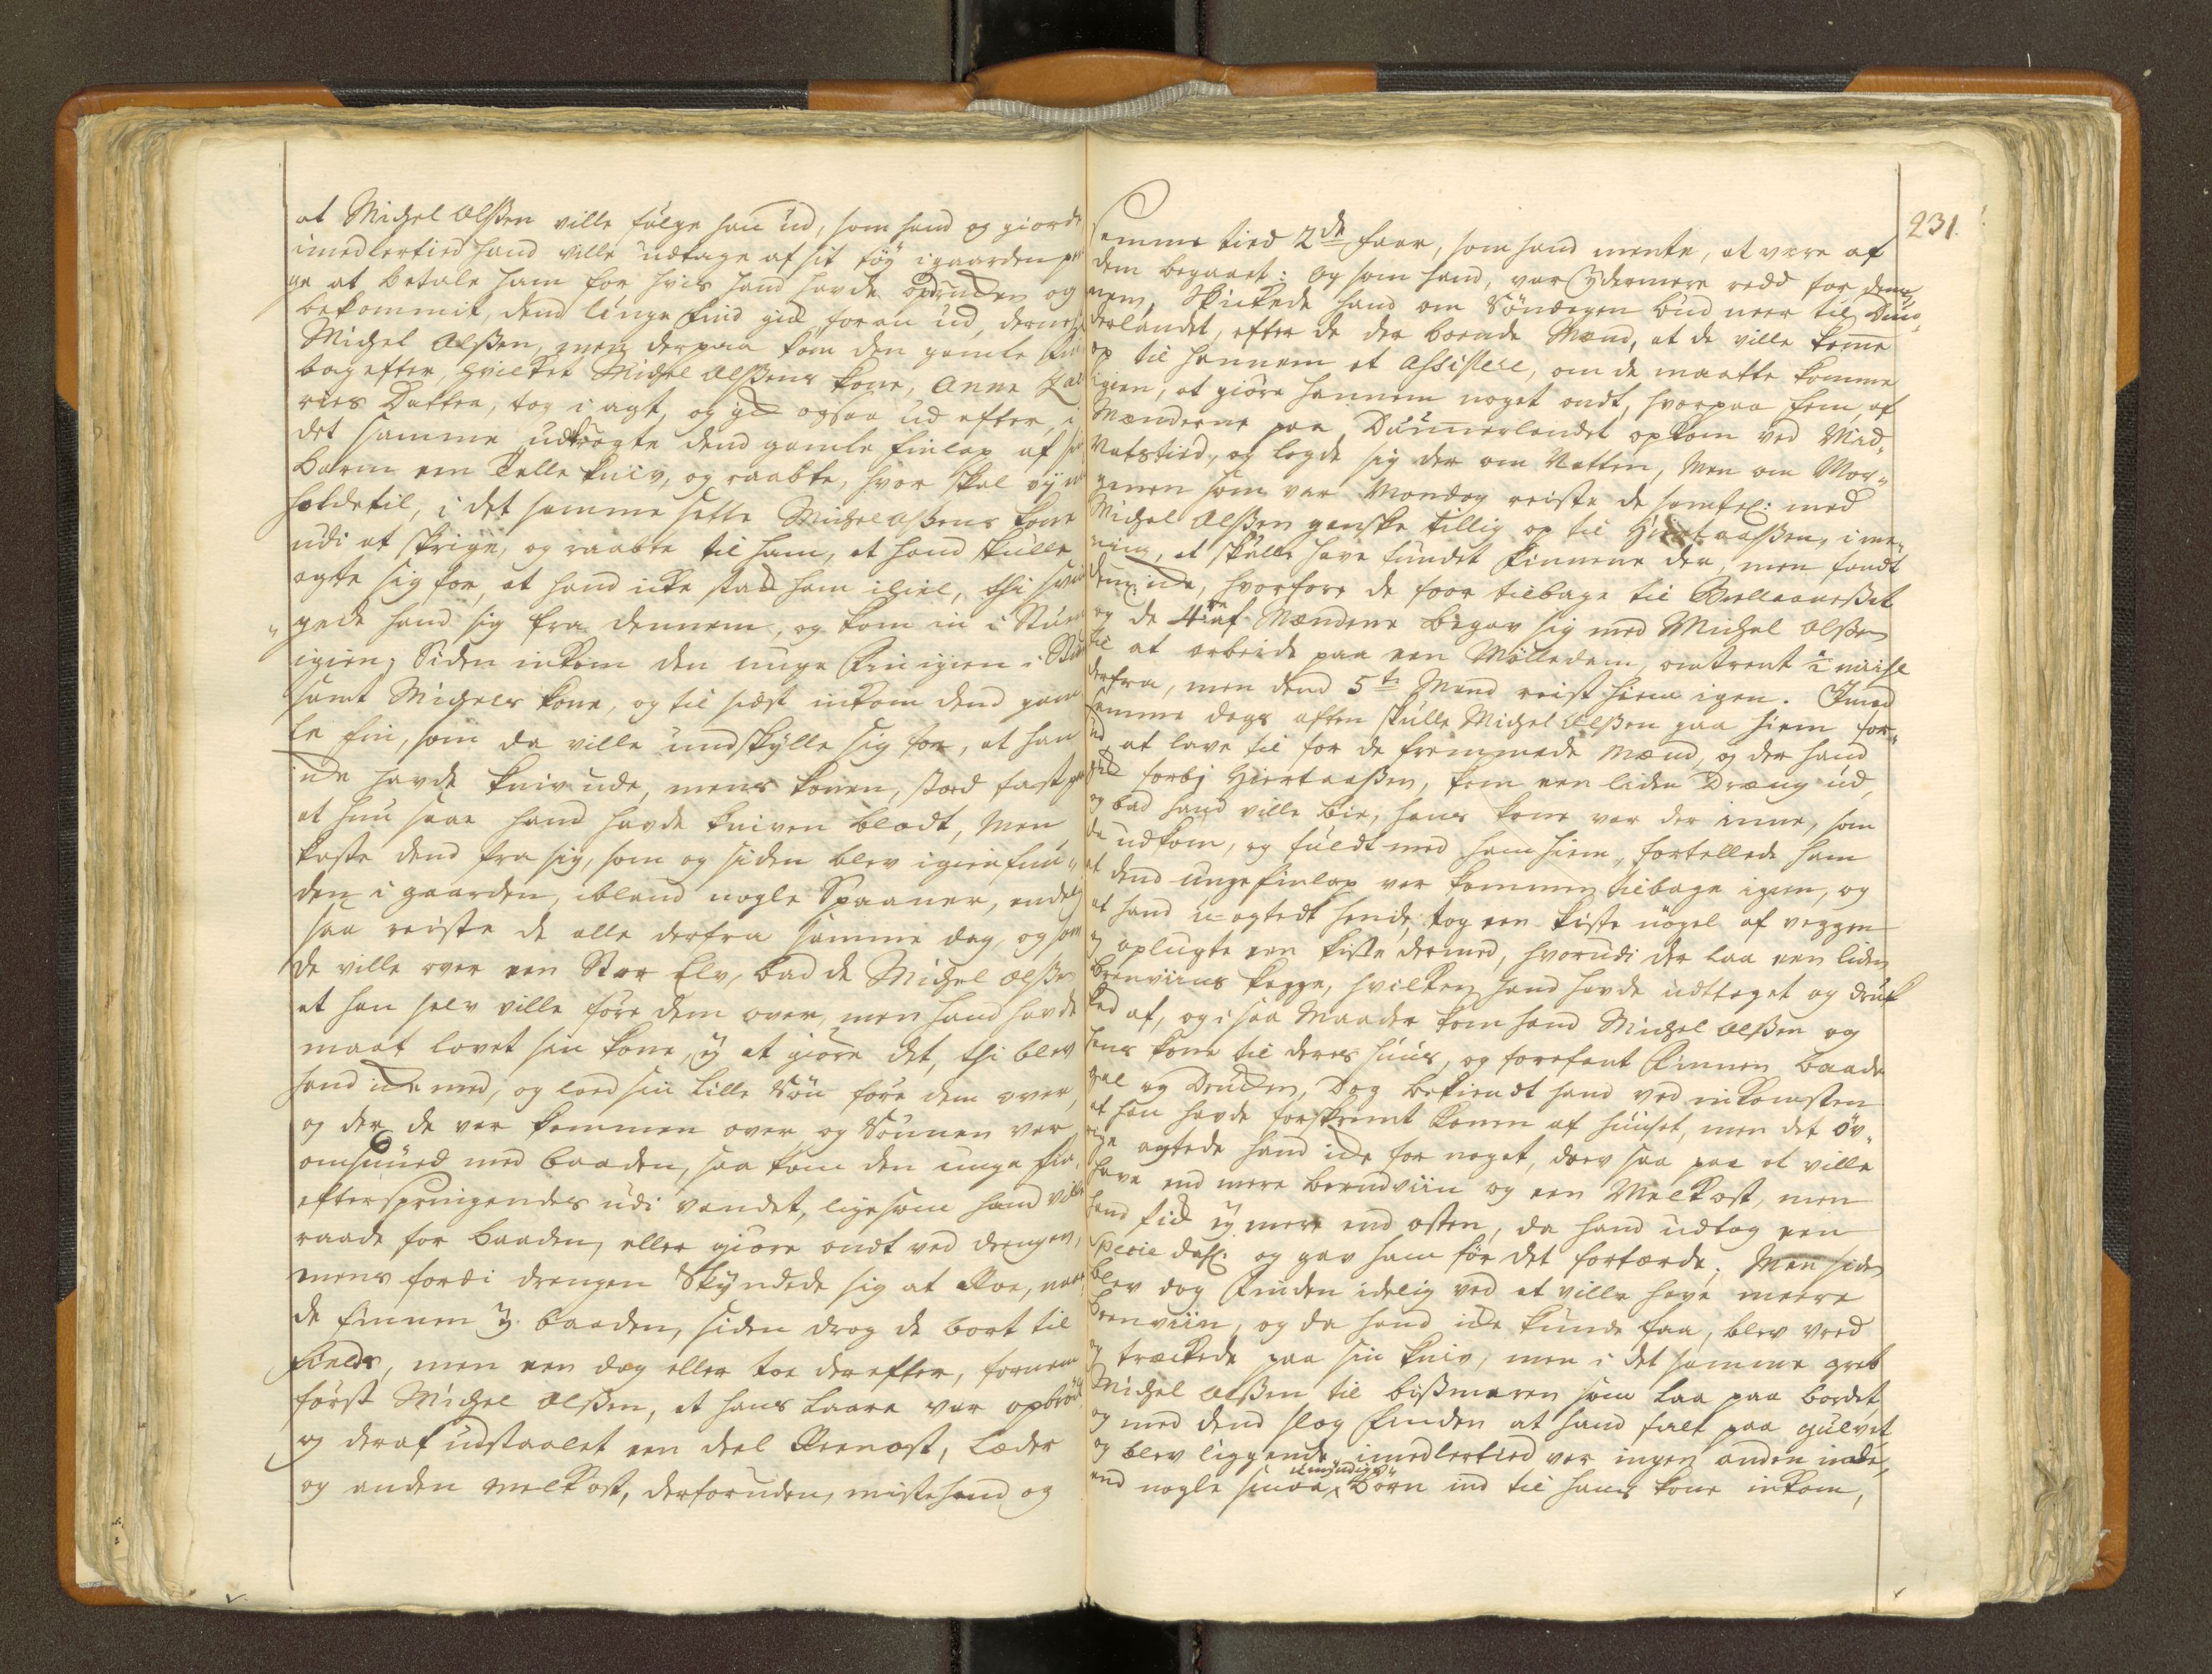 at Michel Olßen ville fulge han ud, som hand og giorde
imedlertied hand ville udtage af sit töÿ i gaarden
ge at betale ham for hvis hand havde opdrucken og
bekommit, dend unge Find gick foran ud, dernest
Michel Olßen, men derpaa kom den gamle
bag efter, hvilket Michel Olßens kone, Anne
ries Datter, tog i agt, og gick ogsaa ud efter, i
det samme udtrogte dend gamle finlap af sin
barm een Tolle kniv, og raabte, hvor skal vÿ nu
holde til, i det samme satte Michel Olßens kone
udi at skrige, og raabte til ham, at hand skulle
agte sig for, at hand icke stack ham ihiel, thi
gede hand sig fra dennem, og kom in i Stuen
igien, Siden inkom den unge Fin igien i Stuen
samt Michels kone, og til sidst inkom dend gam
le fin, som da ville undskylle sig for, at han
icke havde kniv ude, mens konen, stod fast paa
at hun saae hand havde kniven blodt, Men
kaste dend fra sig, som og siden blev igienfun-
den i gaarden, ibland nogle Spaaner, endelig
saa reiste de alle derfra samme dag, og som
de ville over een Stor Elv, bad de Michel Olßen
at han selv ville före dem over, men hand havde
maat lovet sin kone, eÿ at giöre det, thi blev
hand icke med, og loed sin lille Sön före dem over,
og der de var kommen over og Sönnen var
omsnued med baaden, saa kom den unge fin
efterspringendes udi vandet, ligesom hand ville
raade for baaden, eller giöre ondt ved drengen,
mens fordi drengen Skÿndede sig at Roe, naae
de finnen Eÿ baaden, siden drog de bort til
fields, men een dag eller toe derefter, fornam
först Michel Olßen, at hans Laave var opbrödt
og deraf udstaalet een deel Reenost, Læder
og anden melckost, derforuden, miste hand og

231.
Samme tied 2de faar, som hand mente, at være af
dem begaaet: og som hand, var Ydermere redd for den-
nem, Skickede hand om Söndagen bud neer til Dun-
derlandet, efter de der boende Mænd, at de ville komme
op til hannem at Assistere, om de maatte komme
igien, at giöre hannem noget ondt, hvorpaa fem af
Mænderne paa Dunnerlandet opkom ved Mid-
natstied, og lagde sig der om Natten, Men om Mor-
genen som var Mondag reiste de samtl: med
Michel Olßen ganske tillig op til Hiertaaßen, i me-
ning, at skulle have fundet Finnene der, men fandt
dem icke, hvorfore de foor tilbage til Bielaaneßet
og de 4re af Mændene begav sig med Michel Olßen
til at arbeide paa een Mölledam, omtrent ½ miil
derfra, men dend 5te Mand reiste hiem igen. Imod
samme dags aften skulle Michel Olßen gaa hiem for-
ud at lave til for de fremmede Mænd, og der hand
gick forbj Hiertaaßen, kom een liden Dræng ud,
og bad hand ville bie, hans kone var der inne, som
da udkom, og fuldt med ham hiem, fortellede ham
at dend unge finlap var kommen tilbage igien, og
at hand u-agtedt hende, tog een kiste nögel af veggen
og oplugte een kiste dermed, hvorudi der laa een liden
brenviins kagge, hvilken hand havde udttaget og druc
ked af, og i saa Maader kom hand Michel Olßen og
hans kone til deres huus, og forefant Finnen baade
gal og Drucken, dog bekiendt hand ved inkomsten
at han havde forskremt konen af huuset, men det öv-
rige agtede hand icke for noget, drev saa paa at ville
have end mere brendviin og een Melckost, men
hand fick eÿ mere end osten, da hand udtog een
specie dahl: og gav ham för det fortærde; Men siden
blev dog Finden idelig ved at ville have meere
brenviin, og da hand icke kunde faa, blev vred
og træckede paa sin kniv, men i det samme greb
Michel Olßen til bißmeren som laa paa bordet,
og med dend slog Finden at hand falt paa gulvet
og blev liggende imedlertied var ingen anden inde,
end nogle smaa umÿndige Börn ind til hans kone inkom,